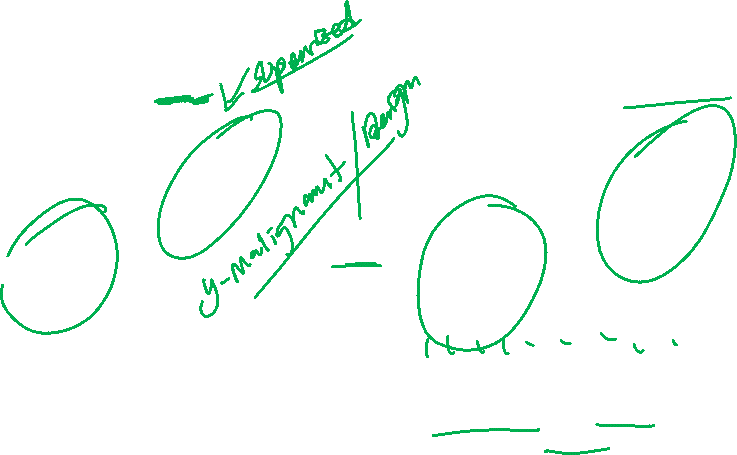 Superized
y-malignant/Benign